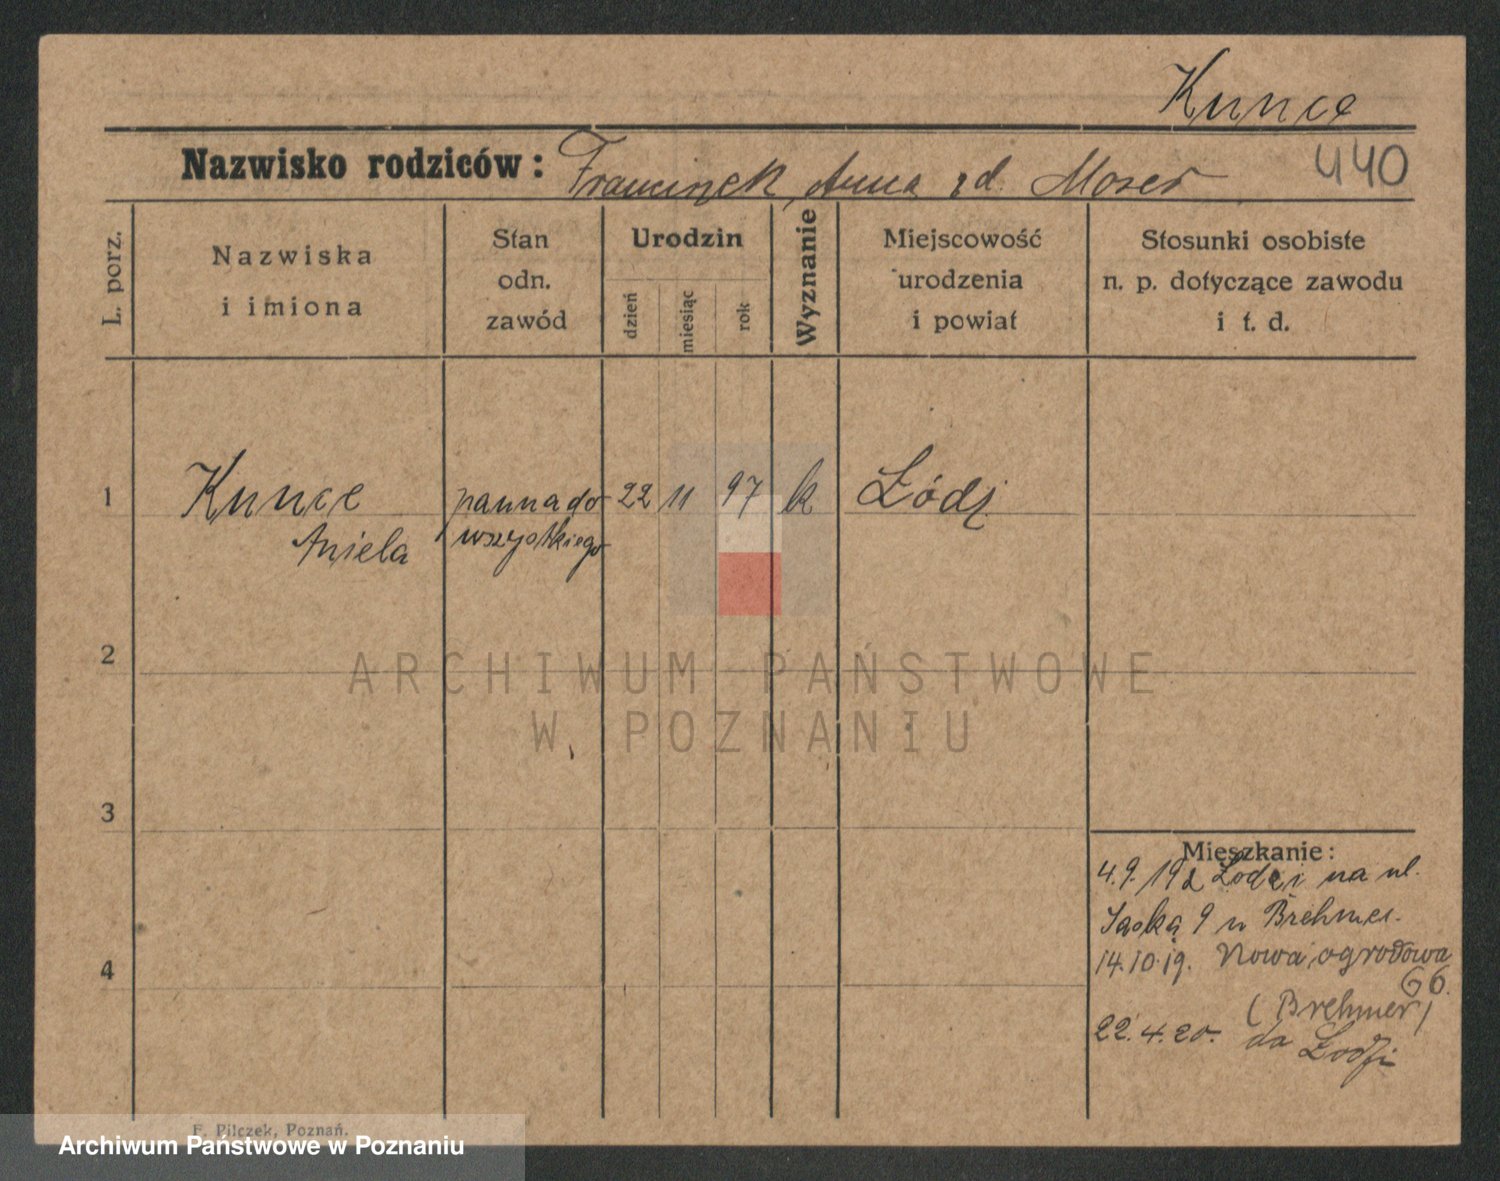 Kunce
Nazwisko rodziców: Franciszek, Anna zd. Moser 440
L. porz.
Nazwiska
i imiona
Stan
odn.
zawód
Urodzin
dzień
miesiąc
rok
Wyznanie
Miejscowość
urodzenia
i powiat
Stosunki osobiste
n. p. dotyczące zawodu
i t. d.
1 Kunce panna do 22 11 97 k Łódź
Aniela wszystkiego
2
ARCHIWUM PAŃSTWOWE
W POZNANIU
3
Mieszkanie:
4.9.19 z Łodzi na ul.
9 u Brehmer.
4 14.10.19. Nowa ogrodowa
66.
(Brehmer)
22.4.20. do Łodzi
F. Pilczek, Poznań.
Archiwum Państwowe w Poznaniu